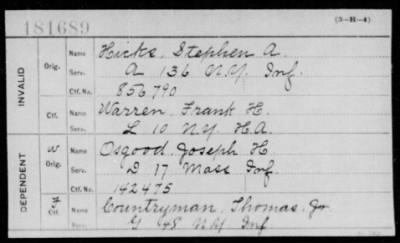 181689
(3-H-4)
INVALID
Orig. Name Hicks, Stephen A.
Serv. A 136 N.Y. Inf.
Ctf. No. 856790
Ctf. Name Warren, Frank H.
Serv. L 10 N.Y. H.A.
DEPENDENT
W Orig. Name Osgood, Joseph H.
Serv. D 17 Mass Inf.
Ctf. No. 142475
Ctf. Name Countryman, Thomas, Jr.
Serv. G 48 N.Y. Inf